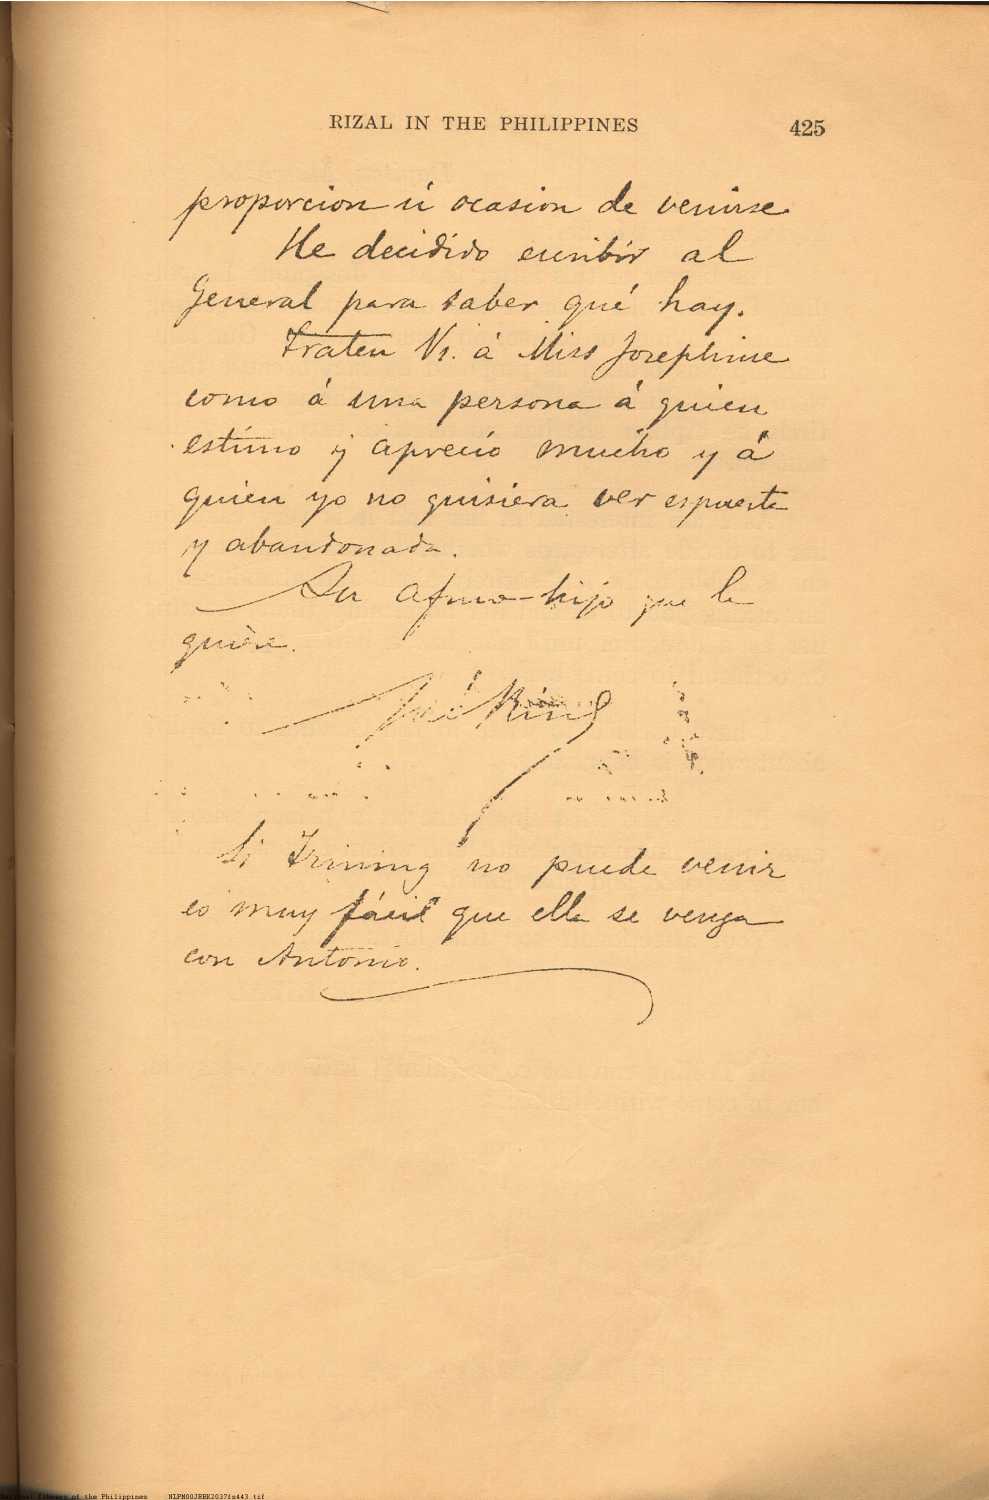 RIZAL IN THE PHILIPPINES 425
proporcion ú ocasion de venirse
He decidido escribir al
General para saber qué hay.
Traten Vs. á Miss Josephine
como á una persona á quien
estimo y aprecio mucho y á
quien yo no quisiera ver espuesta
y abandonada.
Su afmo hijo que le
quiere.
José Rizal
Si Trining no puede venir
es muy fácil que ella se venga
con Antonio.
National Library of the Philippines